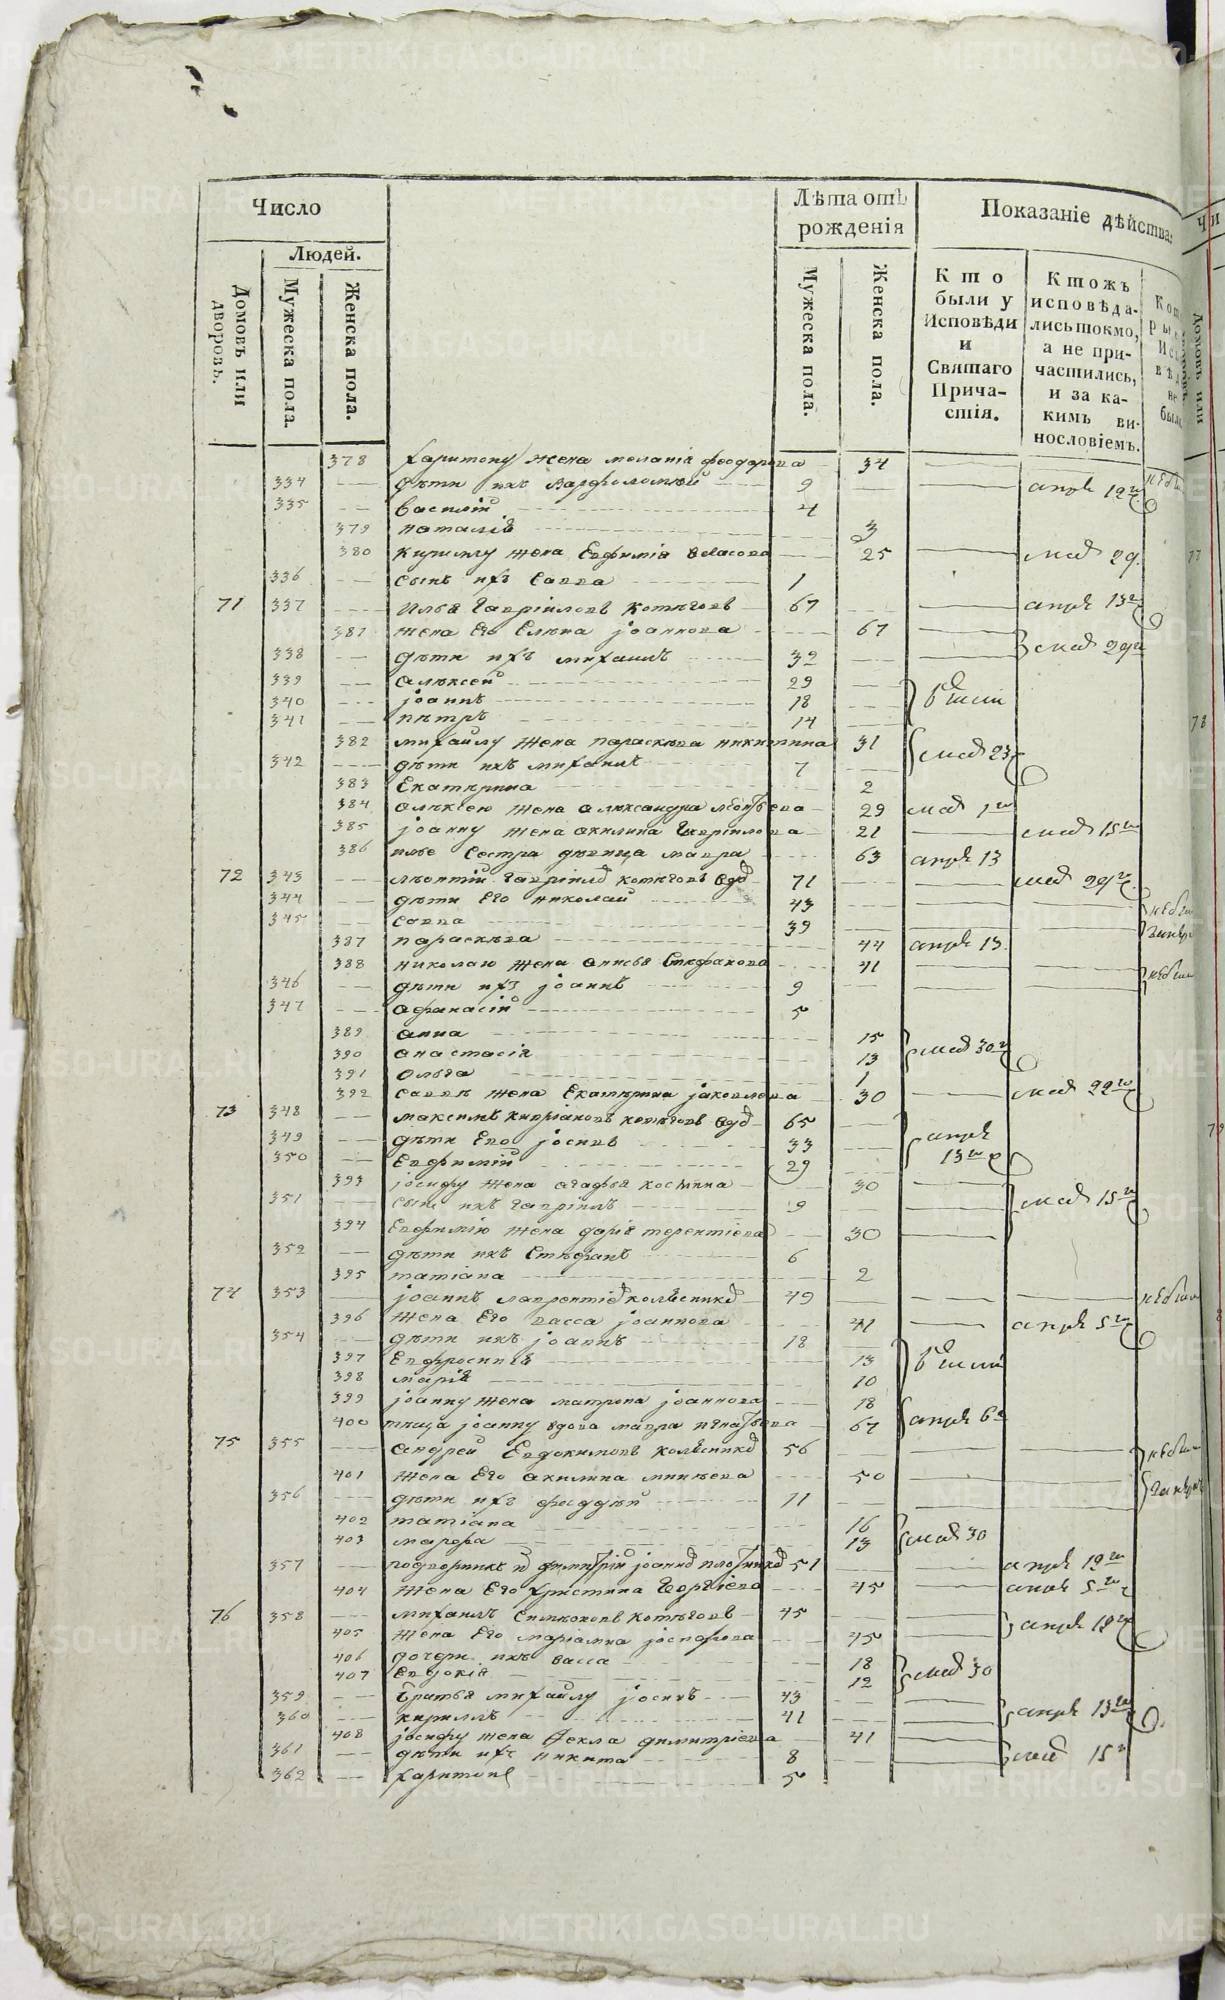 Число
Лѣта отъ рожденія
Показаніе дѣйства
Людей.
Домовъ или дворовъ.
Мужеска пола.
Женска пола.
Мужеска пола.
Женска пола.
Кто были у Исповѣди и Святаго Причастія.
Ктожъ исповѣдались токмо, а не причастились, и за какимъ винословіемъ.
378 харитону жена меланія феодорова 34
334 дѣти ихъ Варфоломѣй 9 апрѣ 19
335 василий 4
379 наталія 3
380 кирилу жена Евфимія власова 25 мая 29
336 сынъ ихъ Савва 1
71 337 Илья Гавріиловъ 67 апрѣ 13
381 жена Его Елена іоаннова 67
338 дѣти ихъ михаилъ 32 мая 29
339 алексей 29
340 іоаннъ 18
341 пѣтръ 14
382 михаилу жена параскева никитина 31 мая 23
342 дѣти ихъ михаилъ 7
383 Екатерина 2
384 алексею жена александра 29 мая 1
385 іоанну жена акилина Гавріилова 21 мая 15
386 илье Сестра дѣвица мавра 63 апрѣ 13
72 343 лѣонтій Гавріилов вдов 71 мая 29
344 дѣти Его николай 43
345 Савва 39
387 параскева 44 апрѣ 13
388 николаю жена анисья Стефанова 41
346 дѣти ихъ іоаннъ 9
347 афанасій 5
389 анна 15
390 анастасія 13 мая 30
391 Ольга 1
392 савве жена Екатерина іаковлева 30 мая 22
73 348 максимъ вдов 65
349 дѣти Его іосифъ 33 апрѣ 13
350 Евфимий 29
393 іосифу жена агафья костина 30
351 сынъ ихъ Гавріилъ 9 мая 15
394 Евфимію жена дарія терентіева 30
352 дѣти ихъ Стефанъ 6
395 татіана 2
74 353 іоаннъ лаврентіев колесников 49
396 жена Его васса іоаннова 41 апрѣ 5
354 дѣти ихъ іоаннъ 18
397 Евфросинія 13
398 марія 10
399 іоанну жена матрона іоаннова 18
400 іоанну вдова мавра 67 апрѣ 6
75 355 андрей Евдокимовъ колесников 56
401 жена Его акилина минеева 50
356 дѣти ихъ фаддѣй 11
402 татіана 16
403 марфа 13 мая 30
357 подворникъ димитрій іоаннов плотников 51 апрѣ 19
404 жена Его христина Георгіева 45 апрѣ 5
76 358 михаилъ Симеоновъ 45 апрѣ 19
405 жена Его маріамна 45
406 дочери ихъ васса 18
407 Евдокія 12 мая 30
359 братья михаилу іосифъ 43
360 кириллъ 41 апрѣ 13
408 іосифу жена Фекла димитріева 41
361 дѣти ихъ никита 8 мая 15
362 харитонъ 5
METRIKI.GASO-URAL.RU